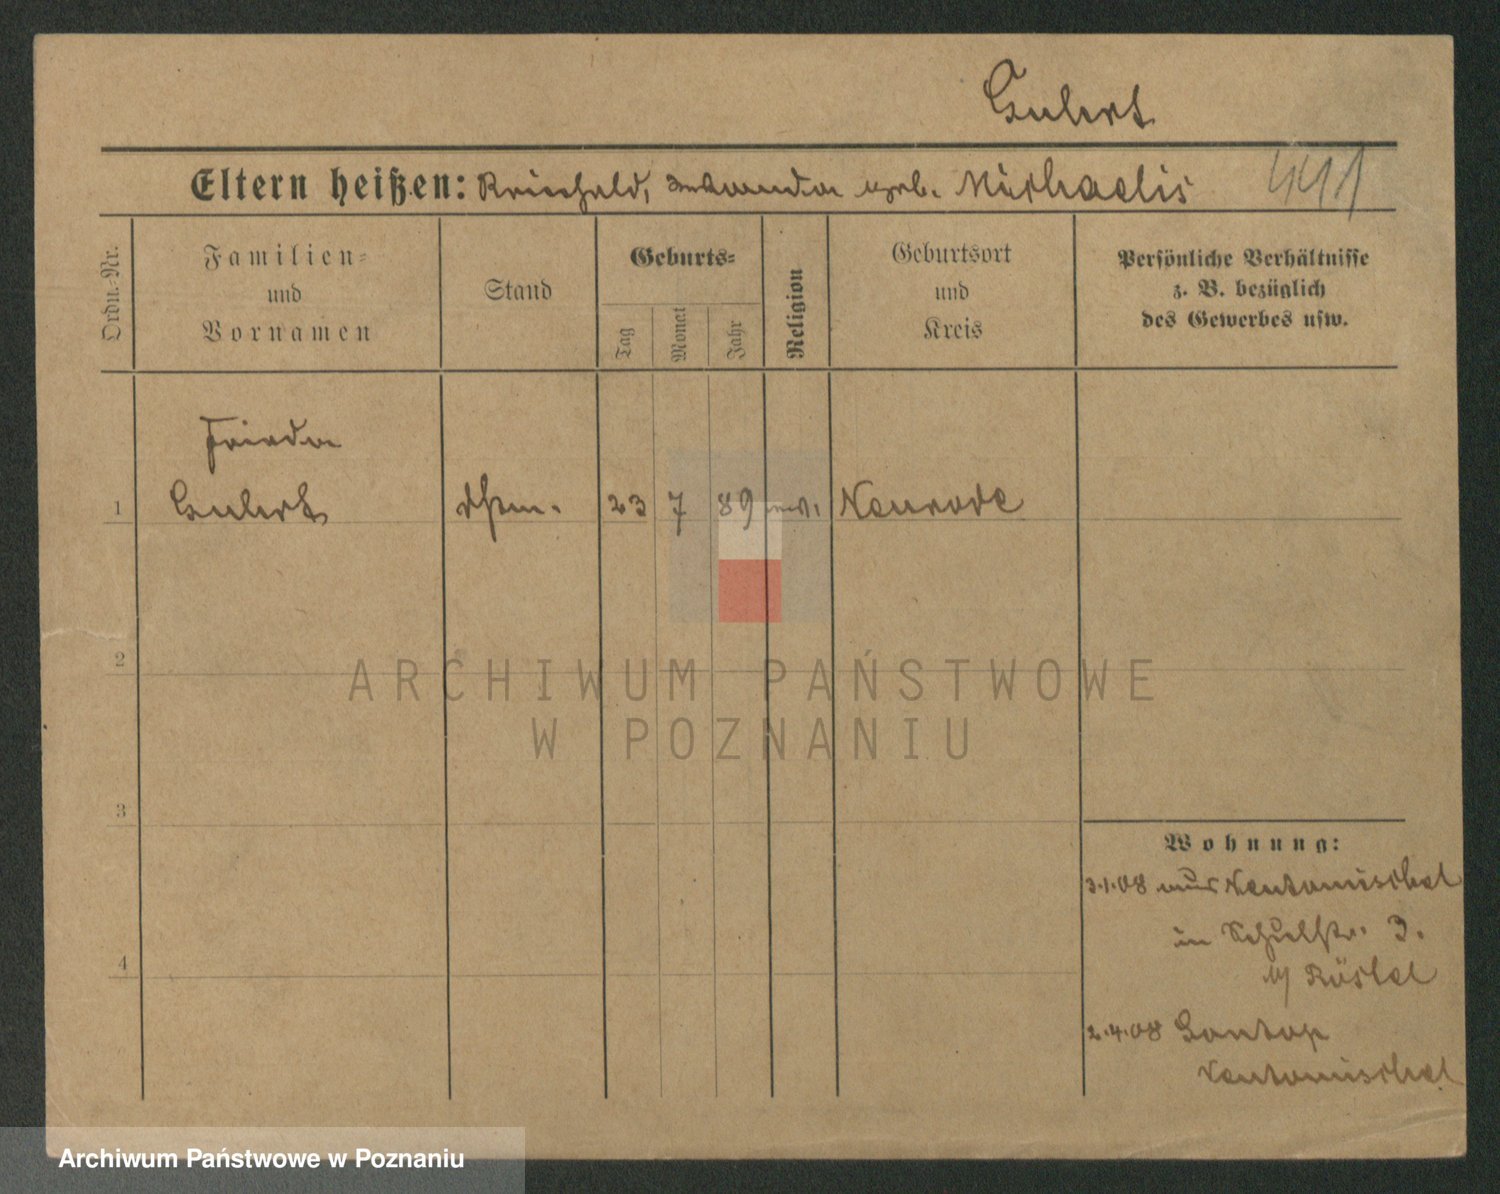 Guhrt
Eltern heißen: Reinhold, geb. Michaelis
441
Ordn.-Nr.
Familien-
und
Vornamen
Stand
Geburts-
Tag
Monat
Jahr
Religion
Geburtsort
und
Kreis
Persönliche Verhältnisse
z. B. bezüglich
des Gewerbes usw.
Frieda
1 Guhrt 23 7 89 Neurode
2
3
4
Wohnung:
3.1.08 aus Neutomischel
in Schulstr. 3.
2.4.08 Sontop
Neutomischel
ARCHIWUM PAŃSTWOWE
W POZNANIU
Archiwum Państwowe w Poznaniu